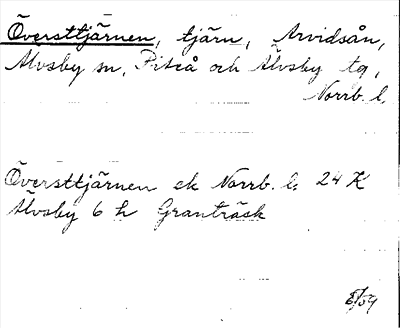 Översttjärnen, tjärn, Arvidsån,
Älvsby sn, Piteå och Älvsby tg,
Norrb. l.
Översttjärnen ek Norrb. l. 24 K
Älvsby 6 h Granträsk